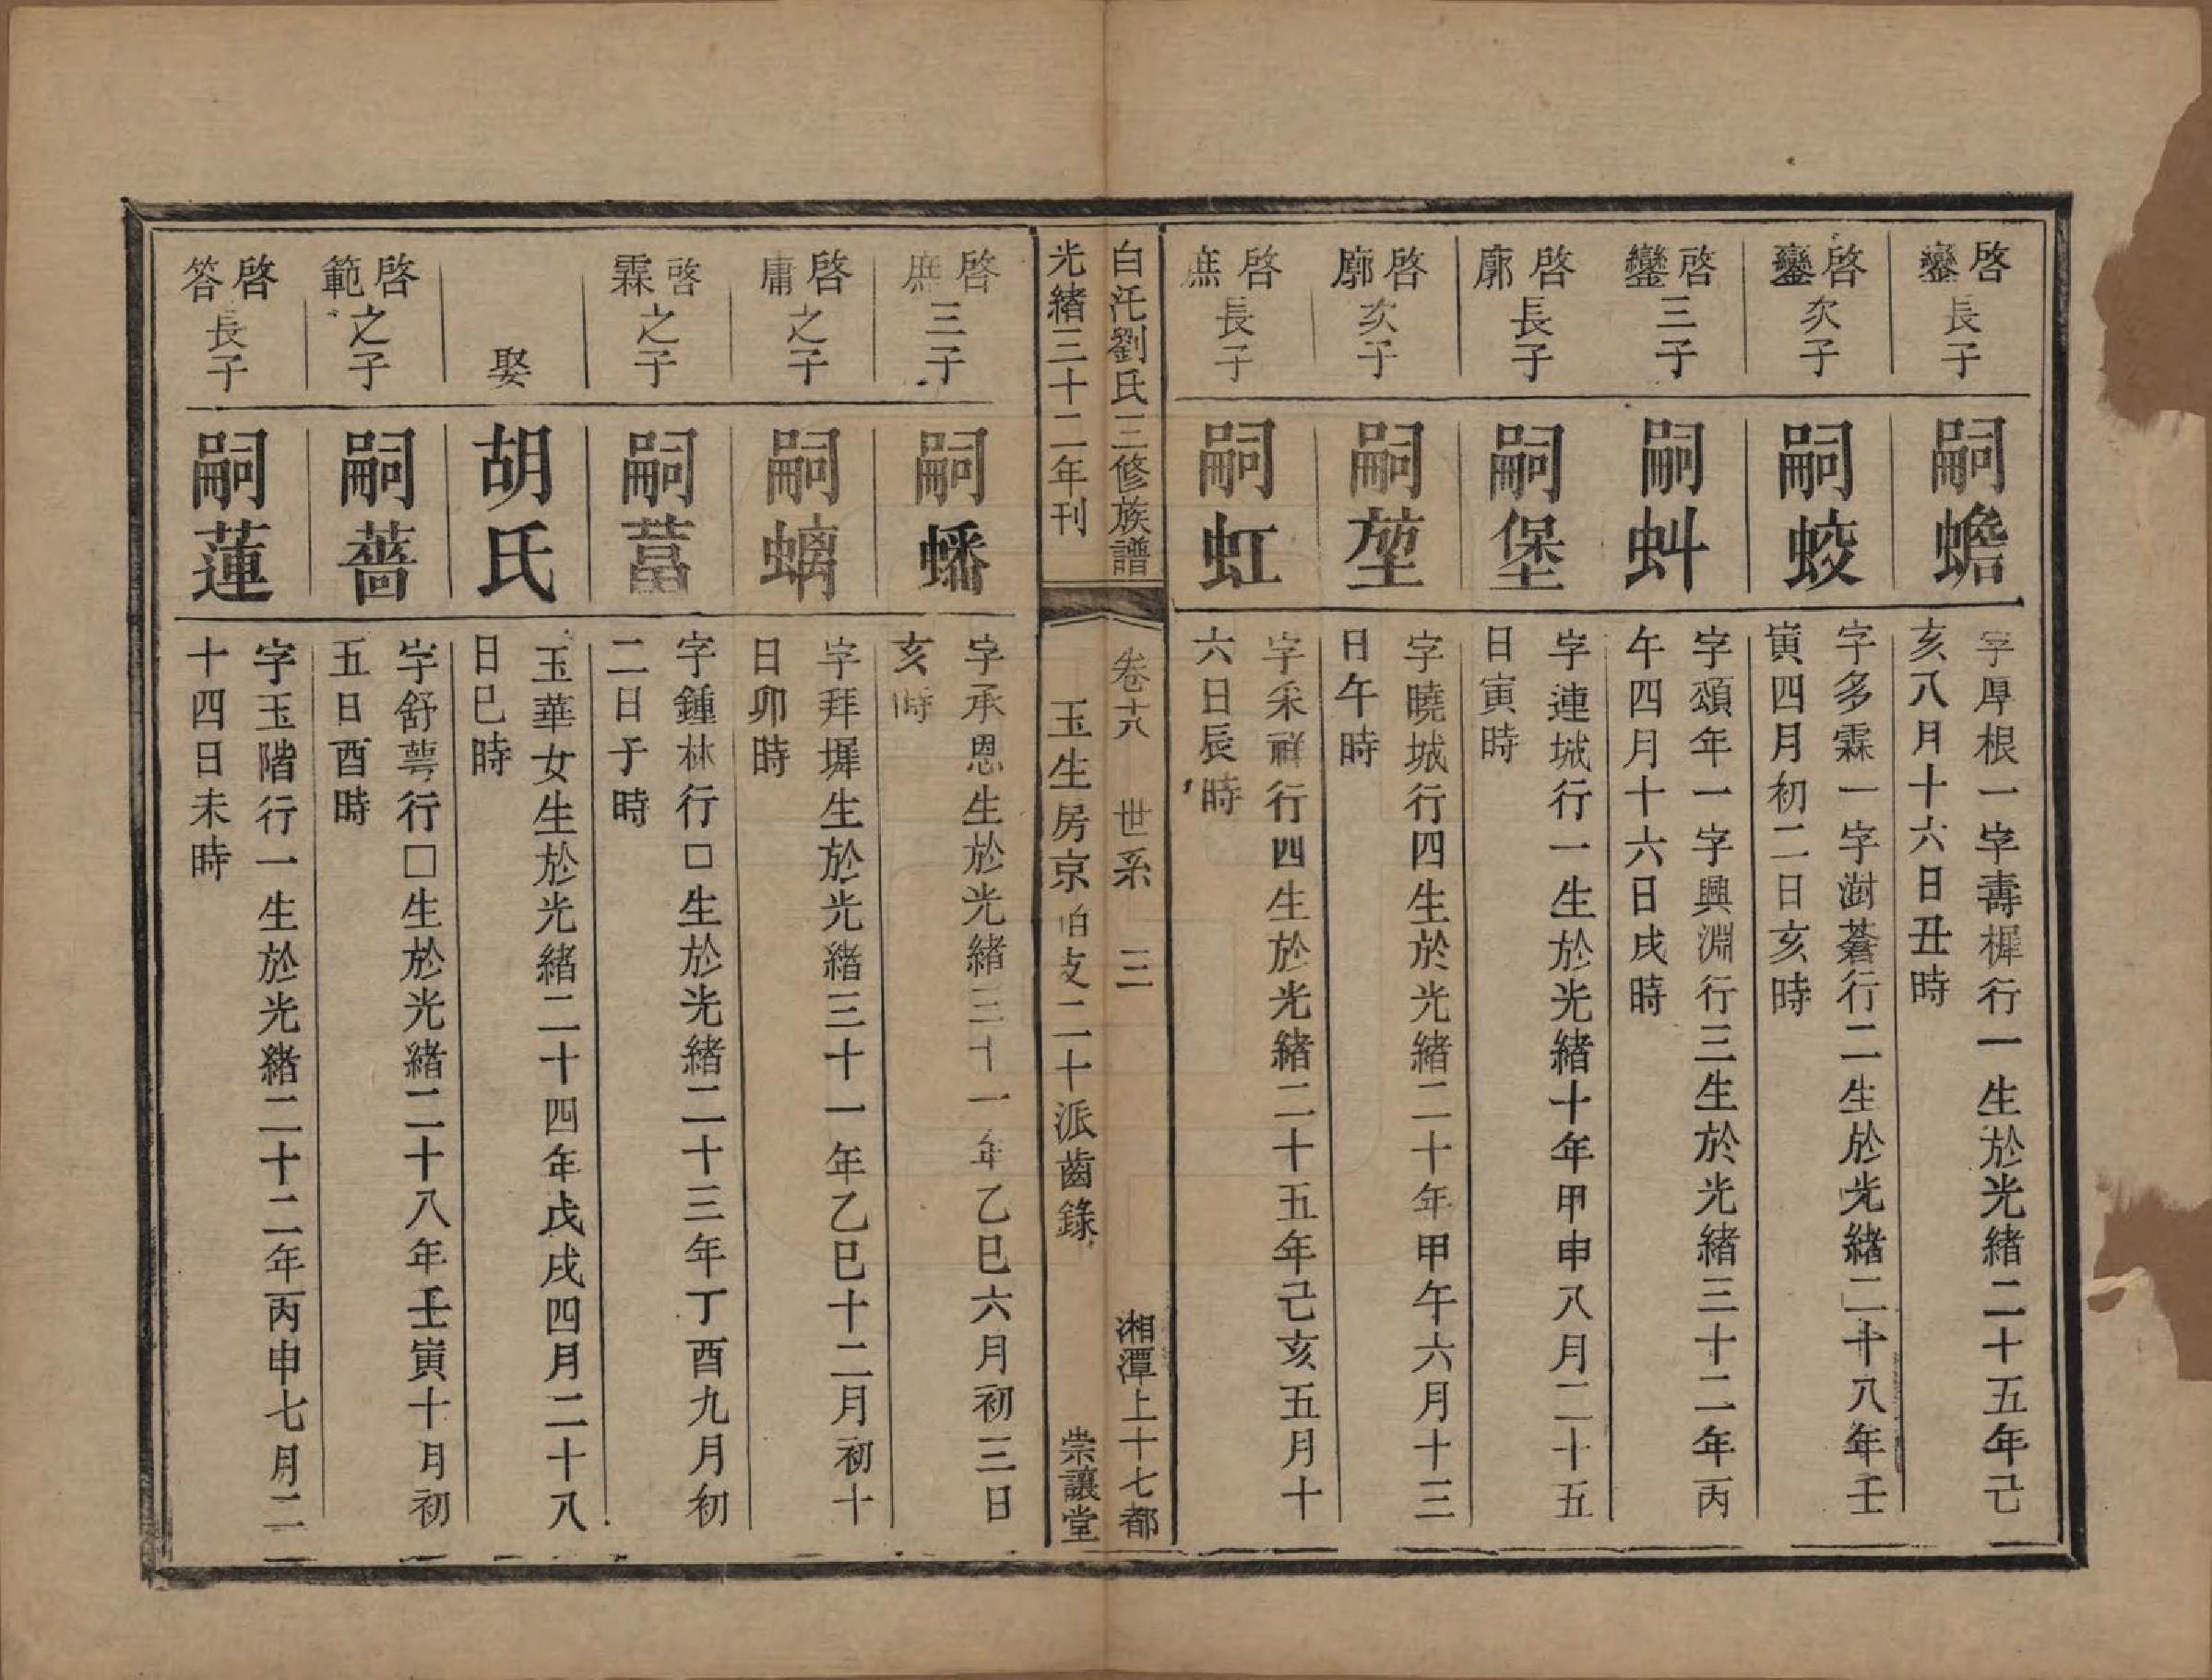 啓鑾長子
嗣蟾
字厚根一字壽樨行一生於光緒二十五年己
亥八月十六日丑時
啓鑾次子
嗣蛟
字多霖一字澍蒼行二生於光緒二十八年壬
寅四月初二日亥時
啓鑾三子
嗣蚪
字頌年一字興淵行三生於光緒三十二年丙
午四月十六日戌時
啓廓長子
嗣堡
字連城行一生於光緒十年甲申八月二十五
日寅時
啓廓次子
嗣堃
字曉城行四生於光緒二十年甲午六月十三
日午時
啓庶長子
嗣虹
字采祥行四生於光緒二十五年己亥五月十
六日辰時
白汑劉氏三修族譜
卷十八 世系 三
湘潭上十七都
光緒三十二年刊
玉生房京伯支二十派齒錄
崇讓堂
啓庶三子
嗣蟠
字承恩生於光緒三十一年乙巳六月初三日
亥時
啓庸之子
嗣螭
字拜墀生於光緒三十一年乙巳十二月初十
日卯時
啓霖之子
嗣莒
字鍾林行□生於光緒二十三年丁酉九月初
二日子時
娶
胡氏
玉華女生於光緒二十四年戊戌四月二十八
日巳時
啓範之子
嗣薔
字舒萼行□生於光緒二十八年壬寅十月初
五日酉時
啓答長子
嗣蓮
字玉階行一生於光緒二十二年丙申七月二
十四日未時